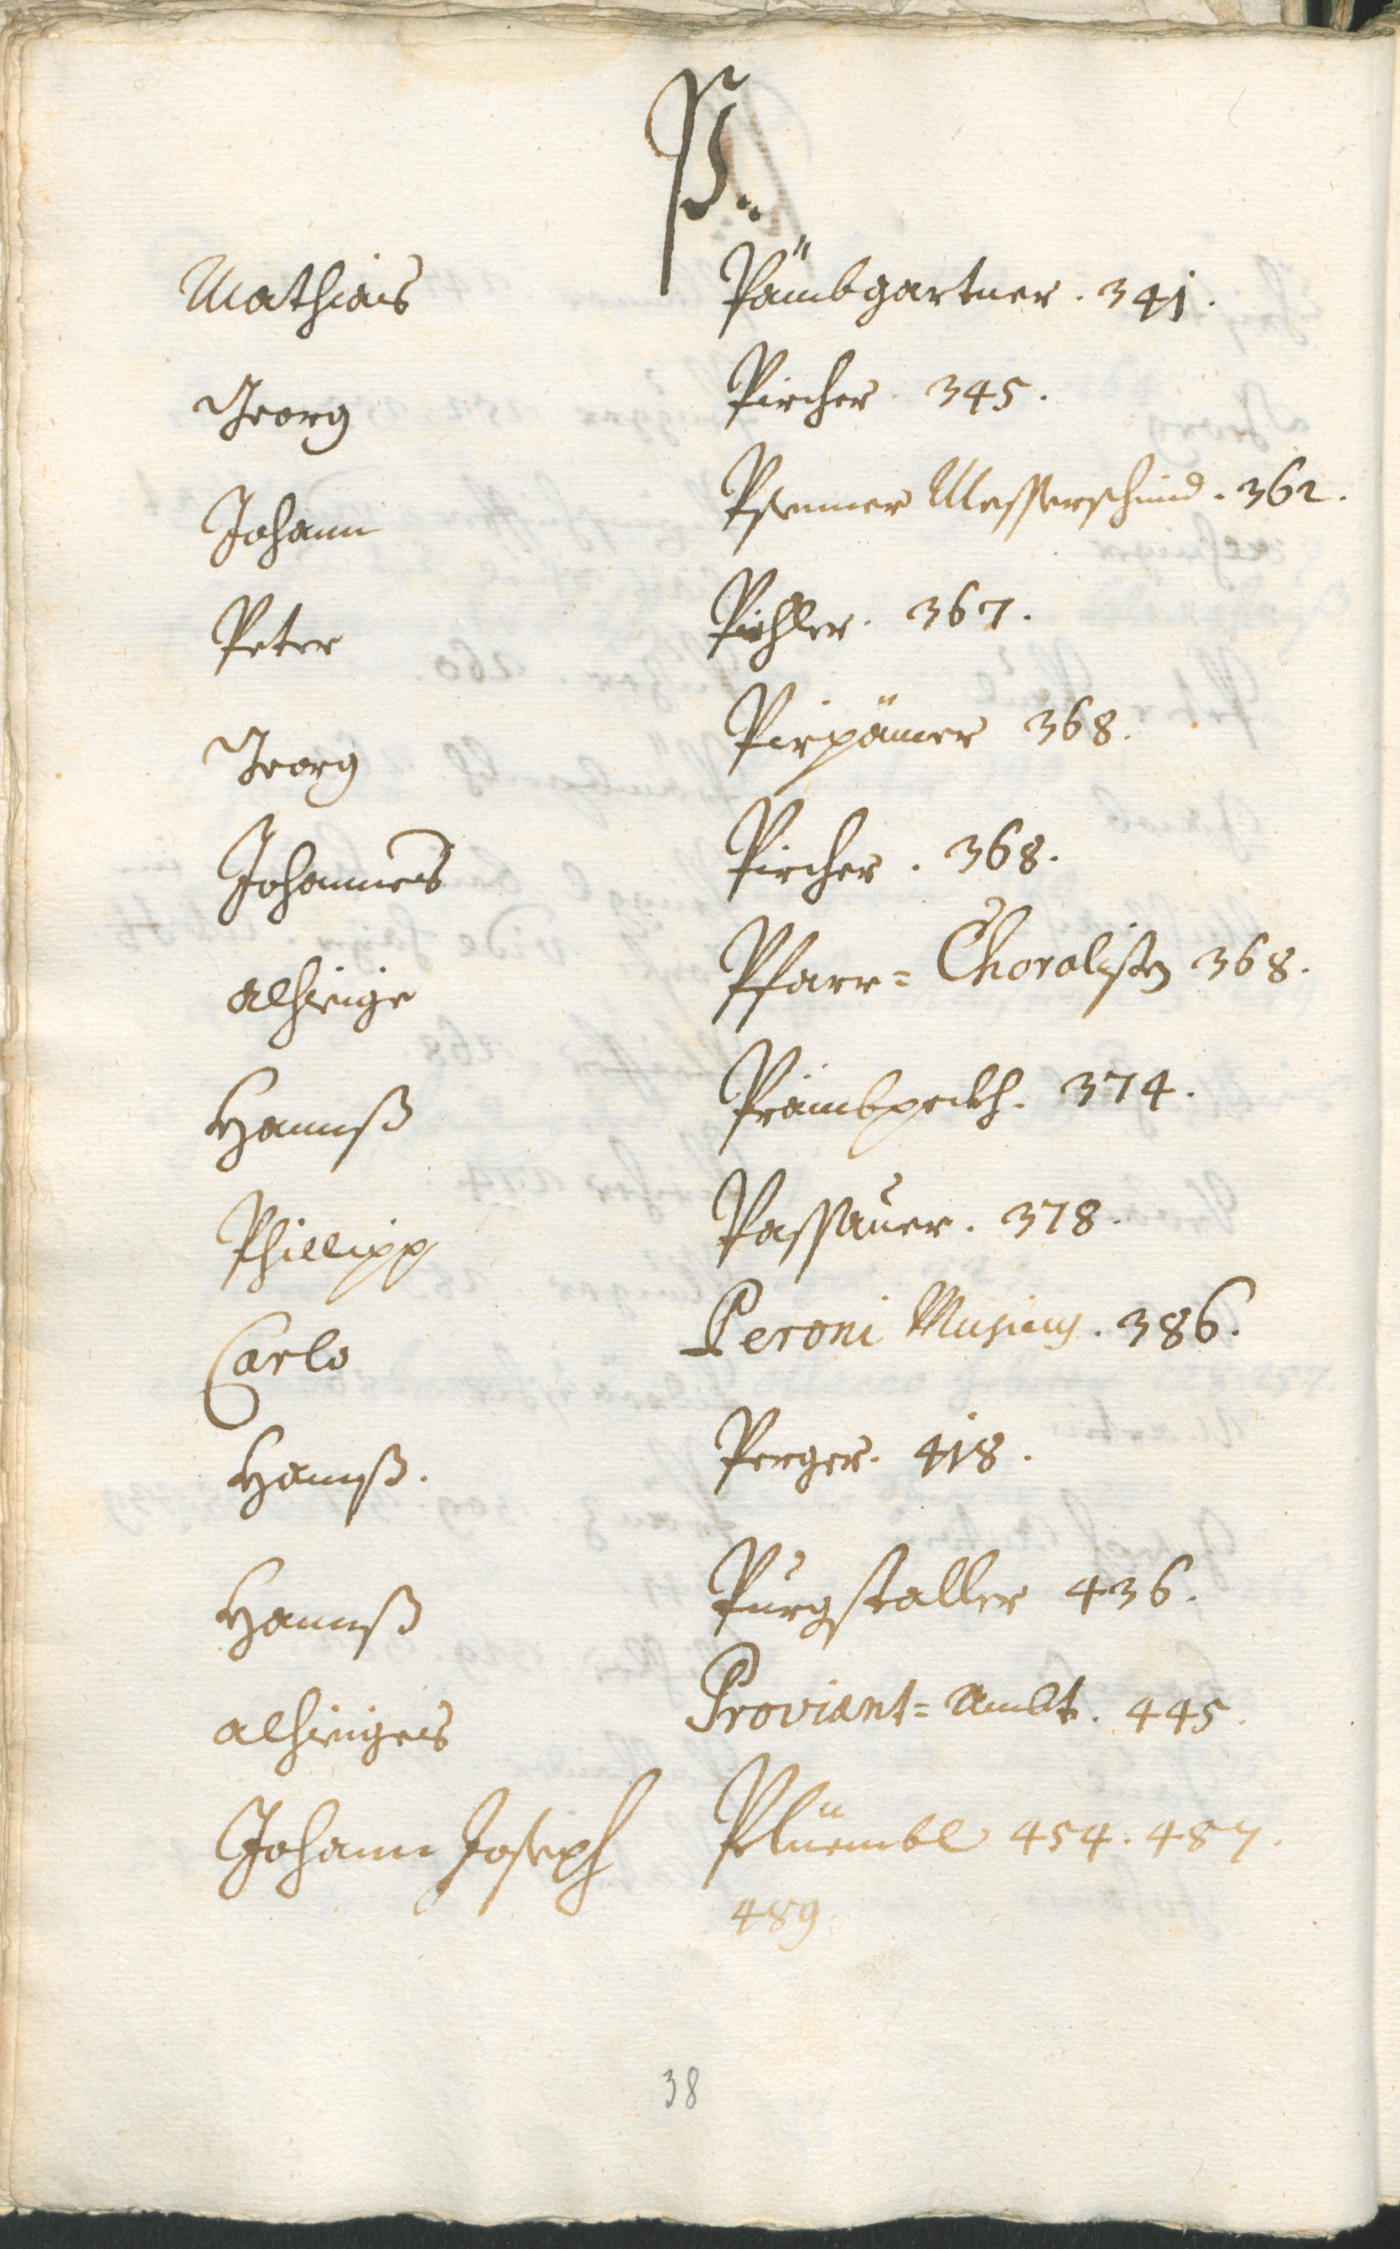 P.
Mathias Pämbgartner. 341.
Georg Pircher 345.
Johann Psenner Messerschmid. 362.
Peter Pichler. 367.
Georg Pirpämer 368.
Johannes Pircher. 368.
alhieige Pfarr= Choralisten 368.
Hannß Prämbpeckh. 374.
Phillipp Passauer. 378.
Carlo Peroni Musicus. 386.
Hannß. Perger. 418.
Hannß Purgstaller 436.
alhieiges Proviant= Ambt. 445.
Johann Joseph Plüembl 454. 487.
489
38